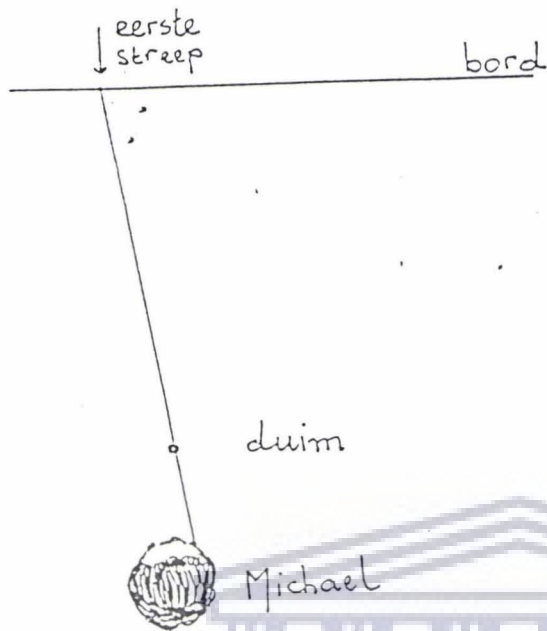 eerste
streep
bord
duim
Michael